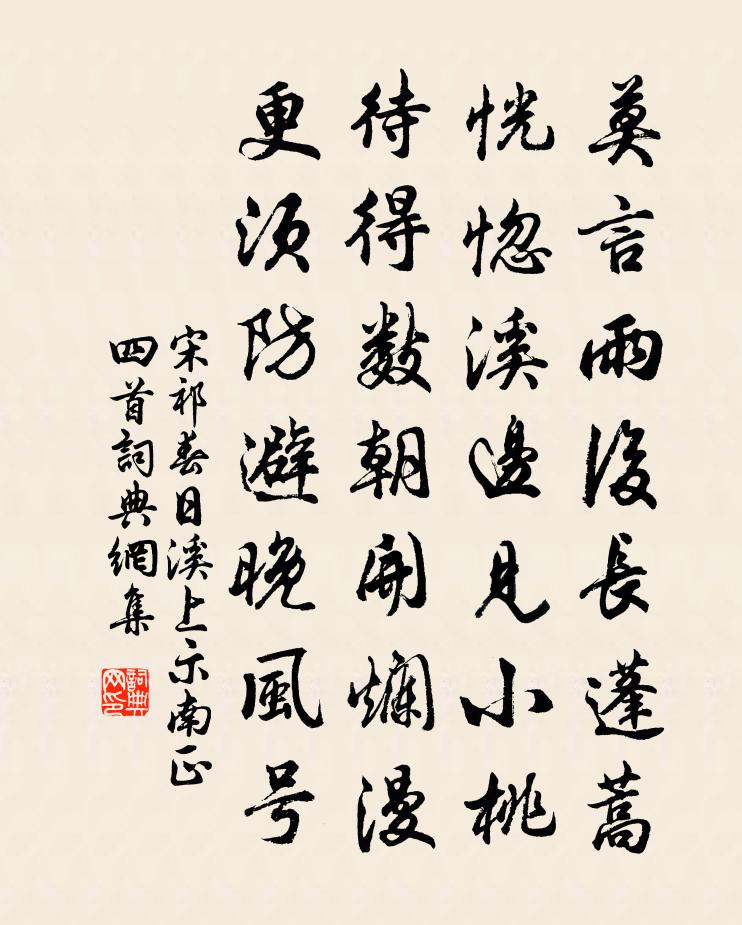 莫言雨後長蓬蒿
恍惚溪邊見小桃
待得數朝開爛漫
更須防避晚風号
宋祁春日溪上示南正
四首詞典網集
詞典
网印